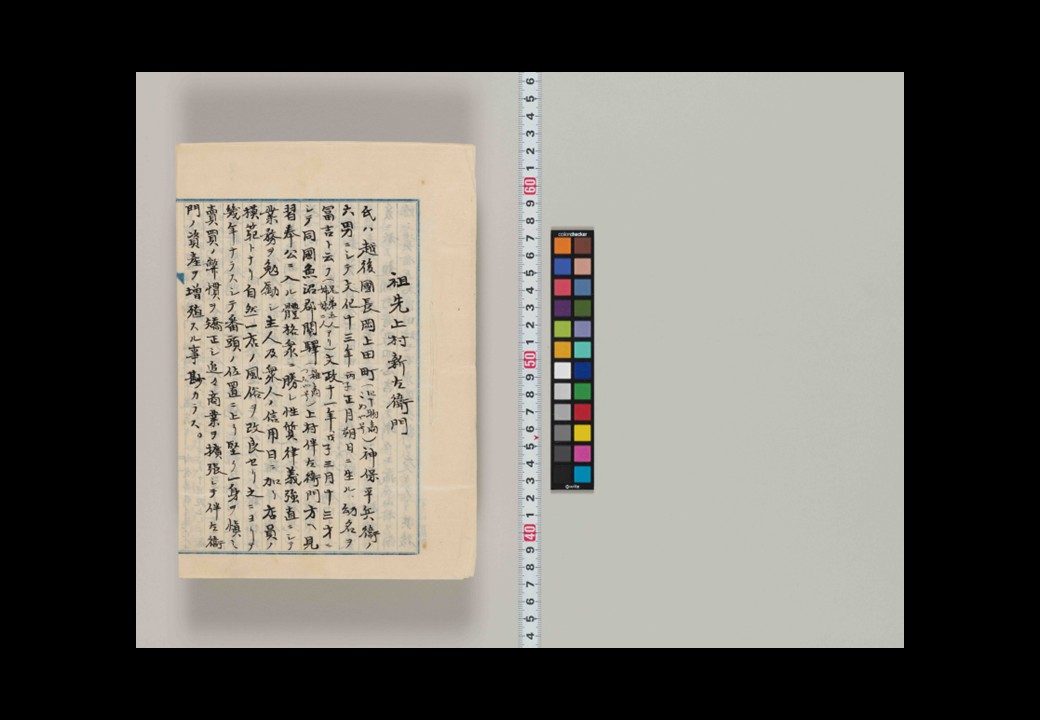 祖先上村新左衛門
氏ハ越後國長岡上田町神保平兵衛ノ
六男ニシテ文化十三年丙子正月朔日ニ生ル幼名ヲ
冨吉ト云フ文政十一年戊子三月十三才ニ
シテ同國魚沼郡関驛上村伴左衛門方ヘ見
習奉公ニ入ル體格衆ニ勝レ性質律義強直ニシテ
業務ヲ勉勵シ主人及衆人ノ信用日ニ加ハリ店員ノ
模範トナリ自然一店ノ風俗ヲ改良セリ之ニヨリテ
幾年ナラスシテ番頭ノ位置ニ上リ堅ク一身ヲ愼ミ
賣買ノ弊慣ヲ矯正シ追々商業ヲ擴張シテ伴左衛
門ノ資産ヲ増殖スル事尠カラス。
colorchecker
6 5 4 3 2 1 60 9 8 7 6 5 4 3 2 1 50 9 8 7 6 5 4 3 2 1 40 9 8 7 6 5 4